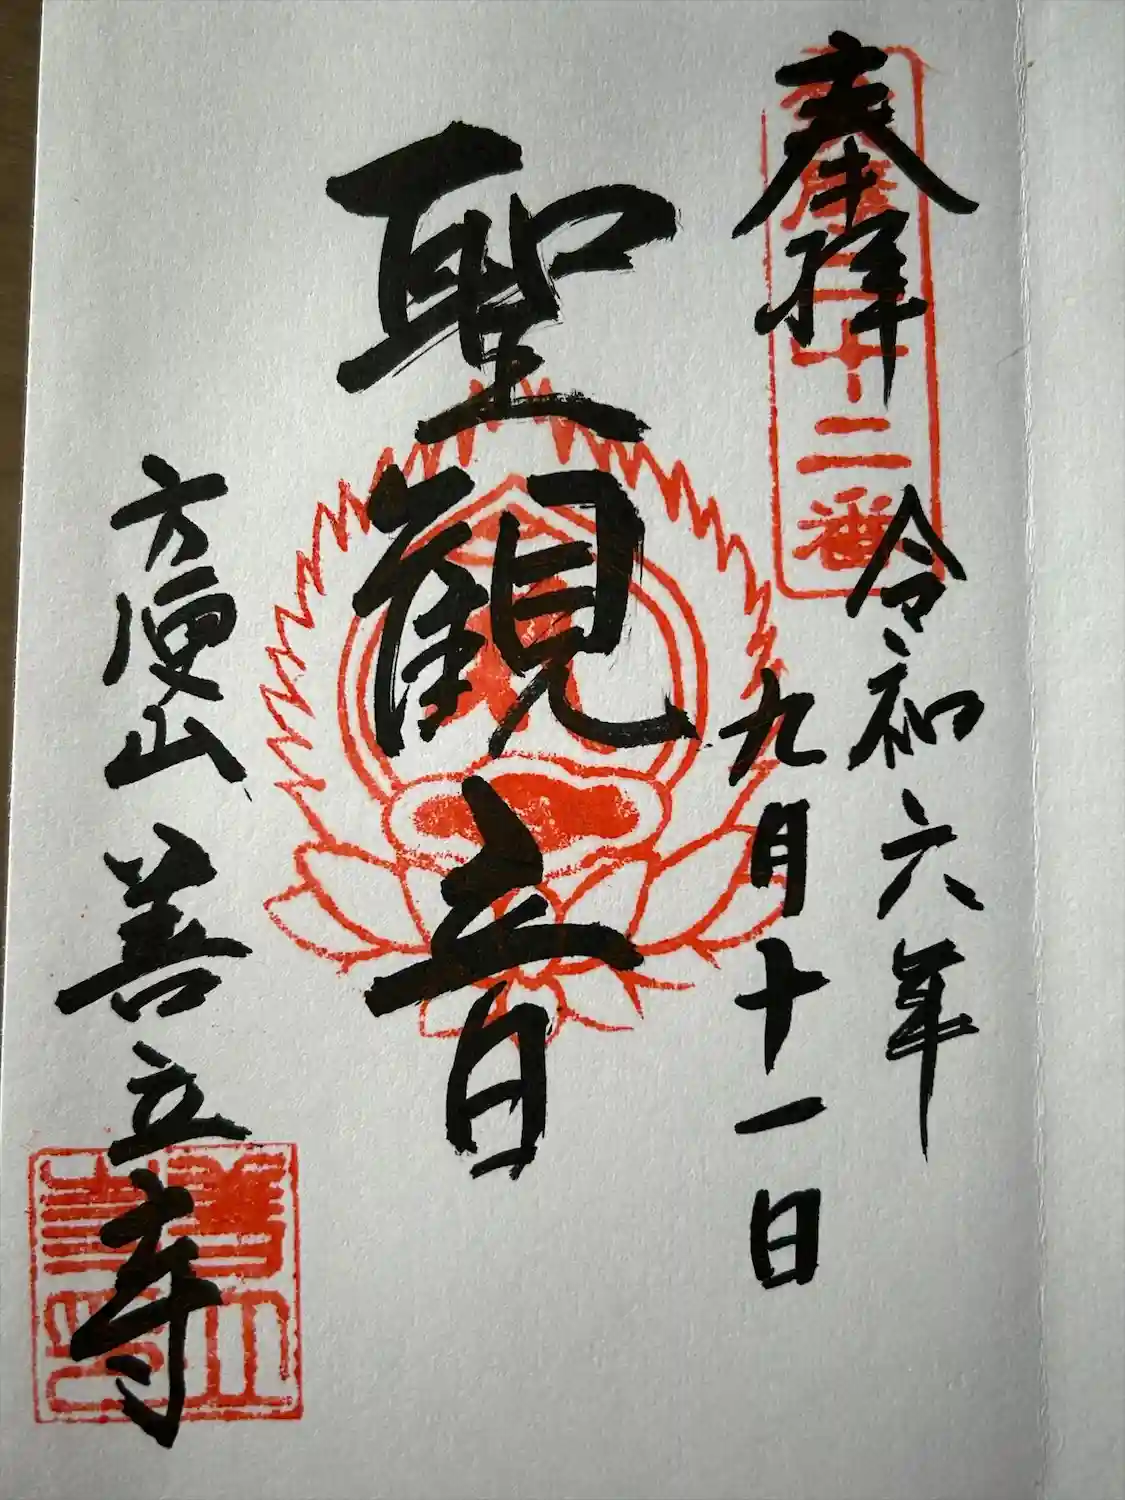 奉拝
十二番
令和六年
九月十一日
聖観音
方便山 善立寺
善立寺印